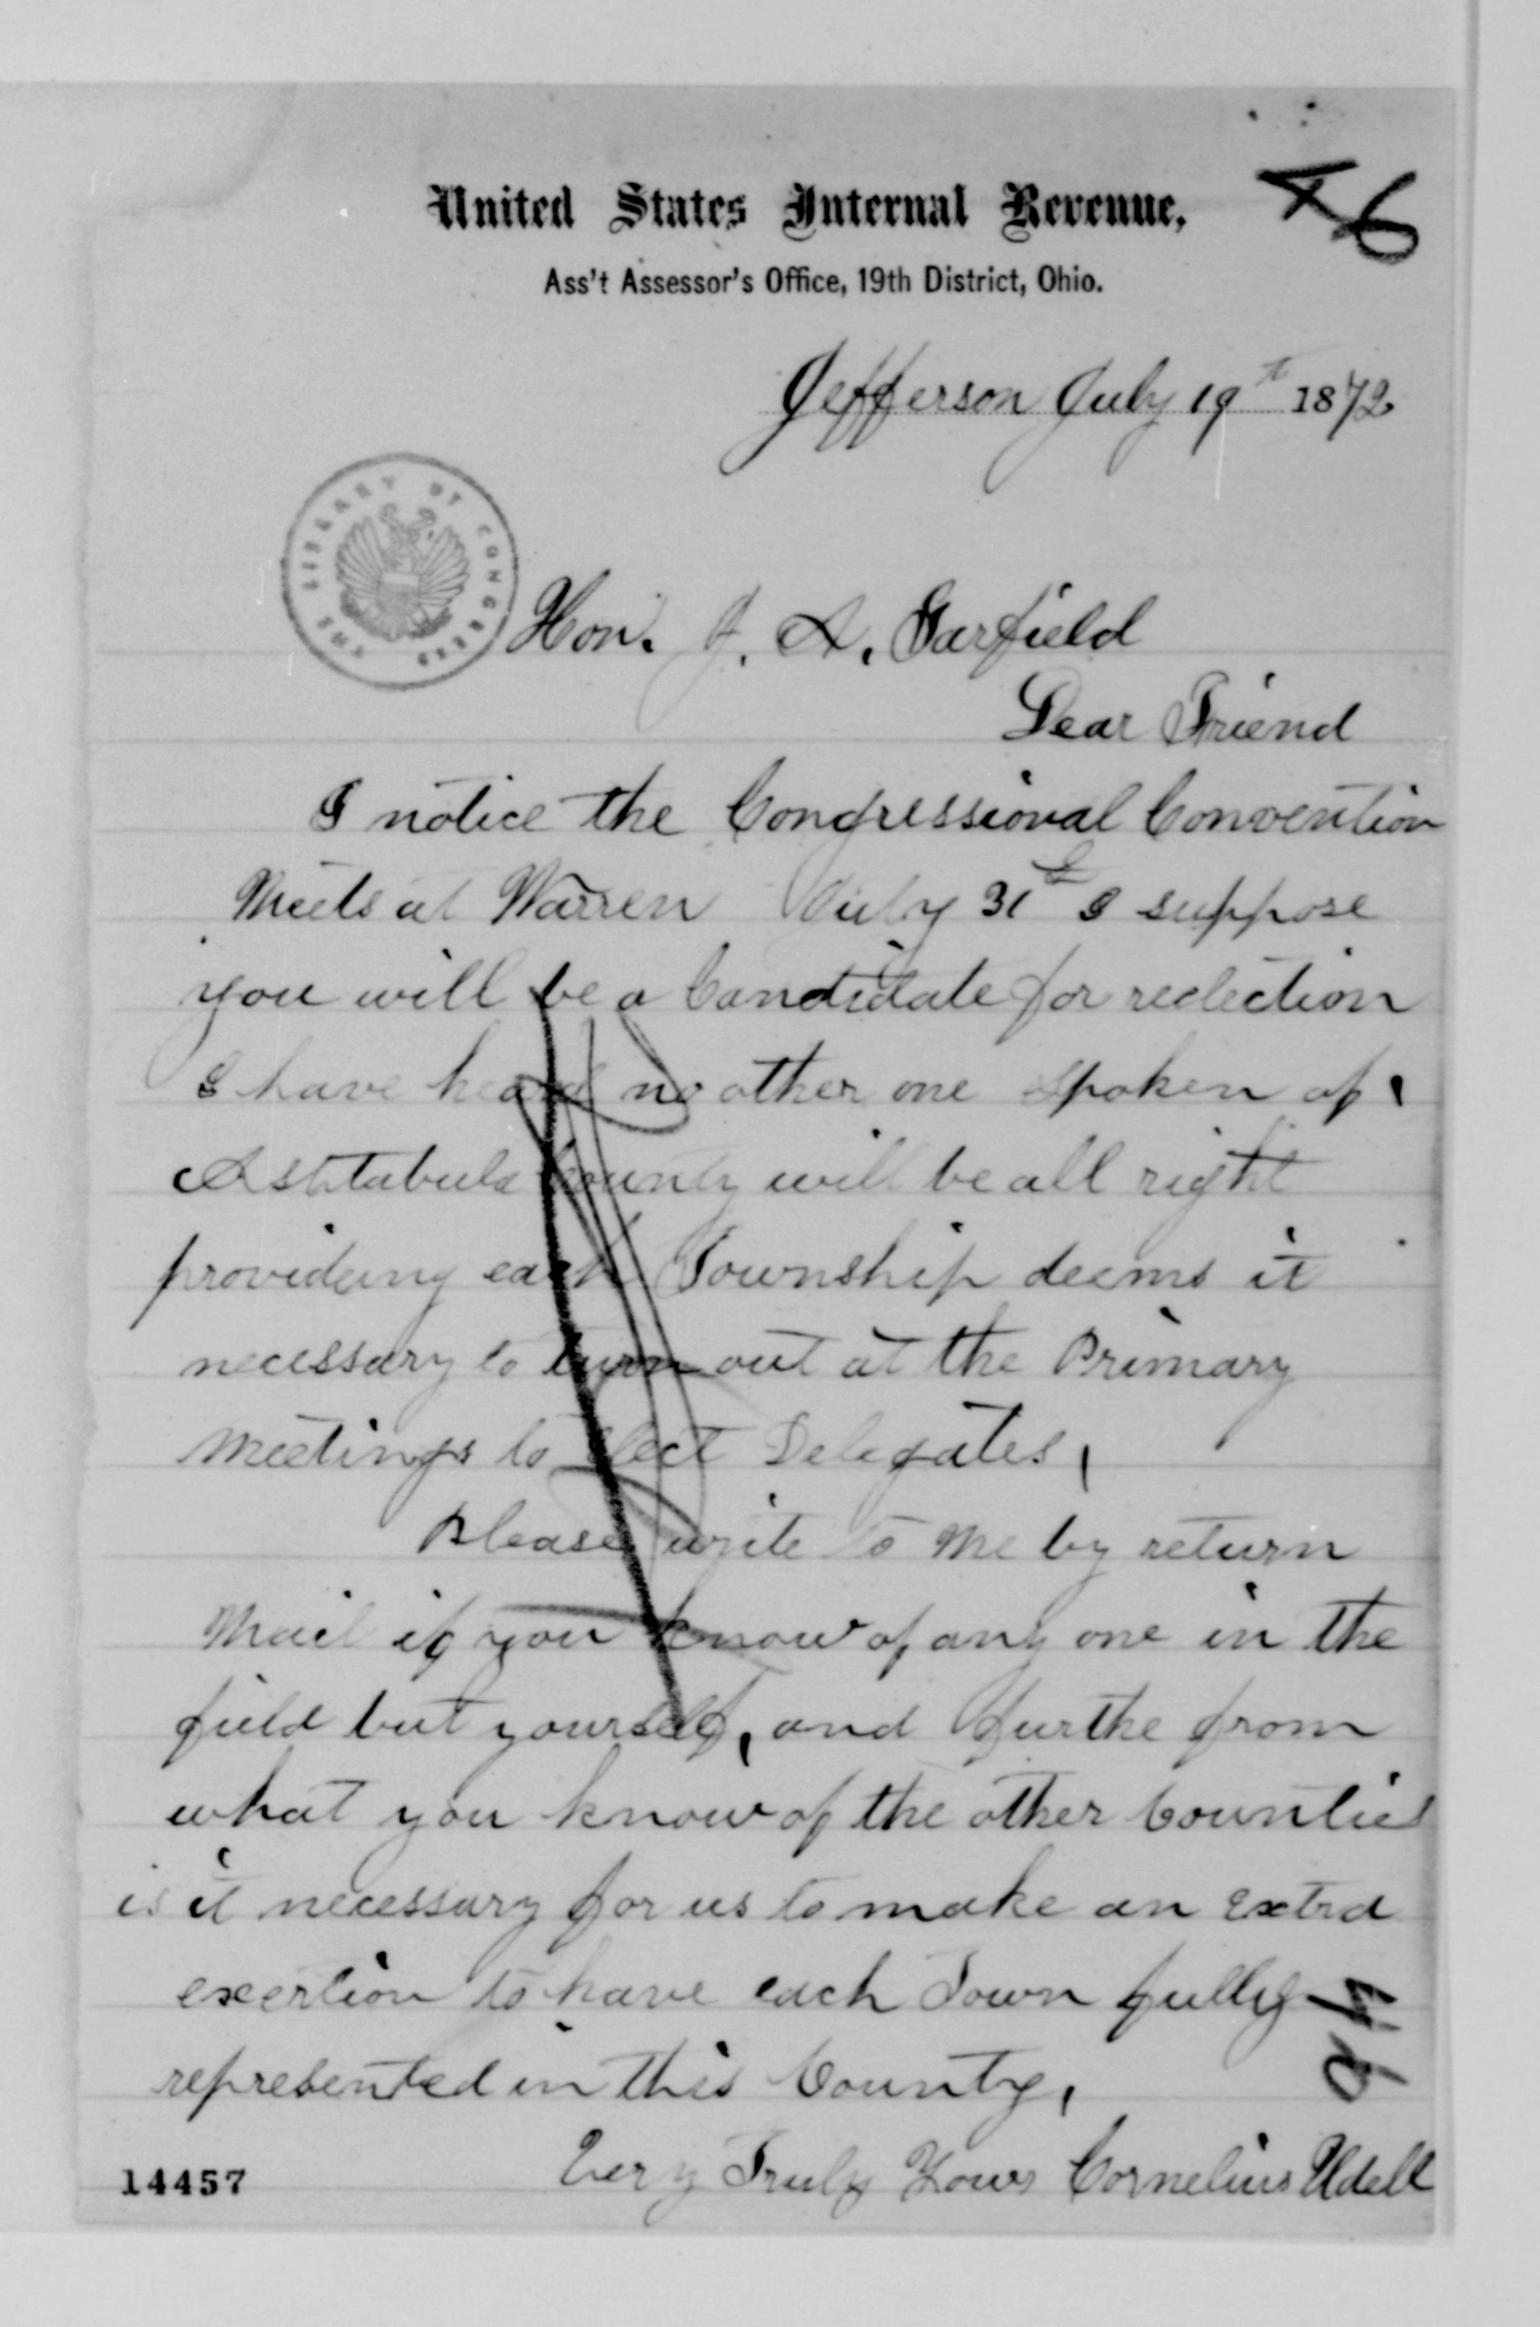 46
United States Internal Revenue,
Ass't Assessor's Office, 19th District, Ohio.
Jefferson July 19th 1872
THE LIBRARY OF CONGRESS
Hon. J. A. Garfield
Dear Friend
I notice the Congressional Convention
Meets at Warren July 31st I suppose
you will be a Candidate for reelection
I have heard no other one spoken of,
Ashtabula County will be all right
providing each Township deems it
necessary to turn out at the Primary
Meetings to elect Delegates,
Please write to me by return
Mail if you know of any one in the
field but yourself, and furthe from
what you know of the other Counties
is it necessary for us to make an extra
exertion to have each Town fully
represented in this County,
Very Truly Yours Cornelius Udell
14457